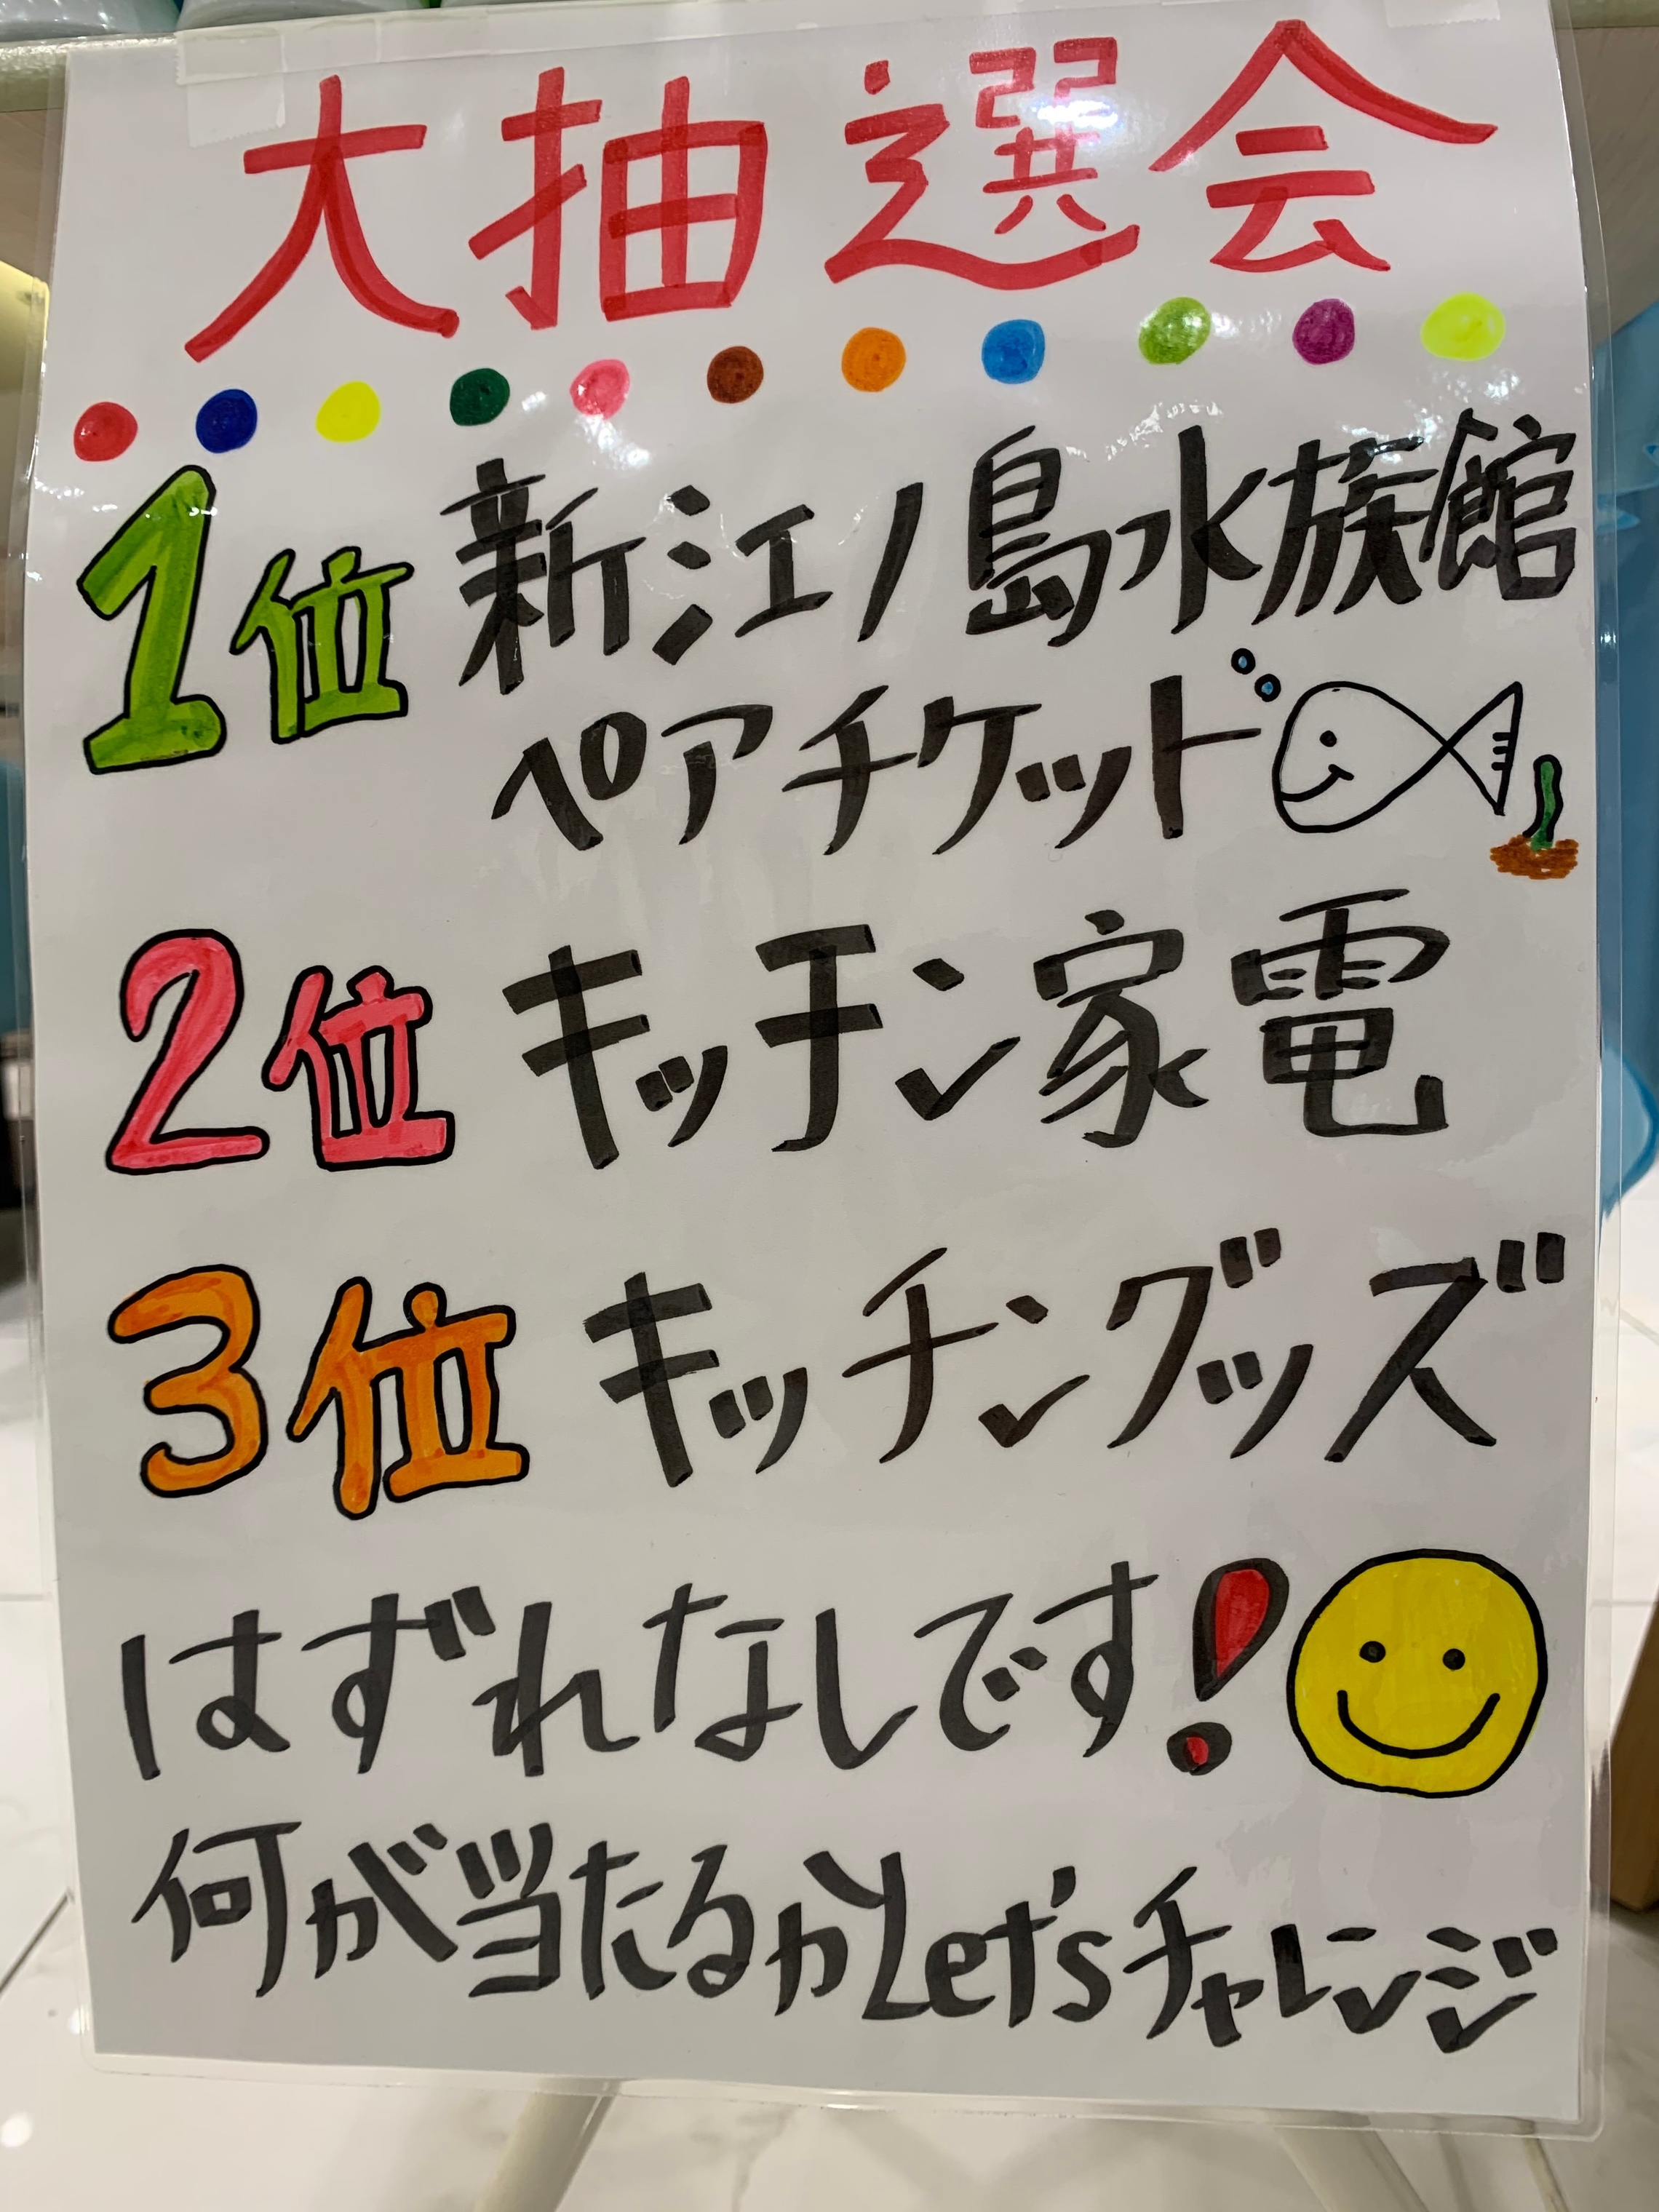 大抽選会
1位 新江ノ島水族館
ペアチケット
2位 キッチン家電
3位 キッチングッズ
はずれなしです!
何が当たるかLet'sチャレンジ